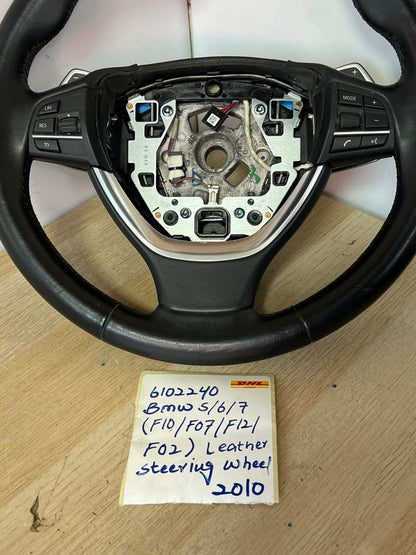 LIM
RES
MODE
+
−
DHL
6102240
Bmw 5/6/7
(F10/F07/F12/
F02) Leather
steering wheel
2010